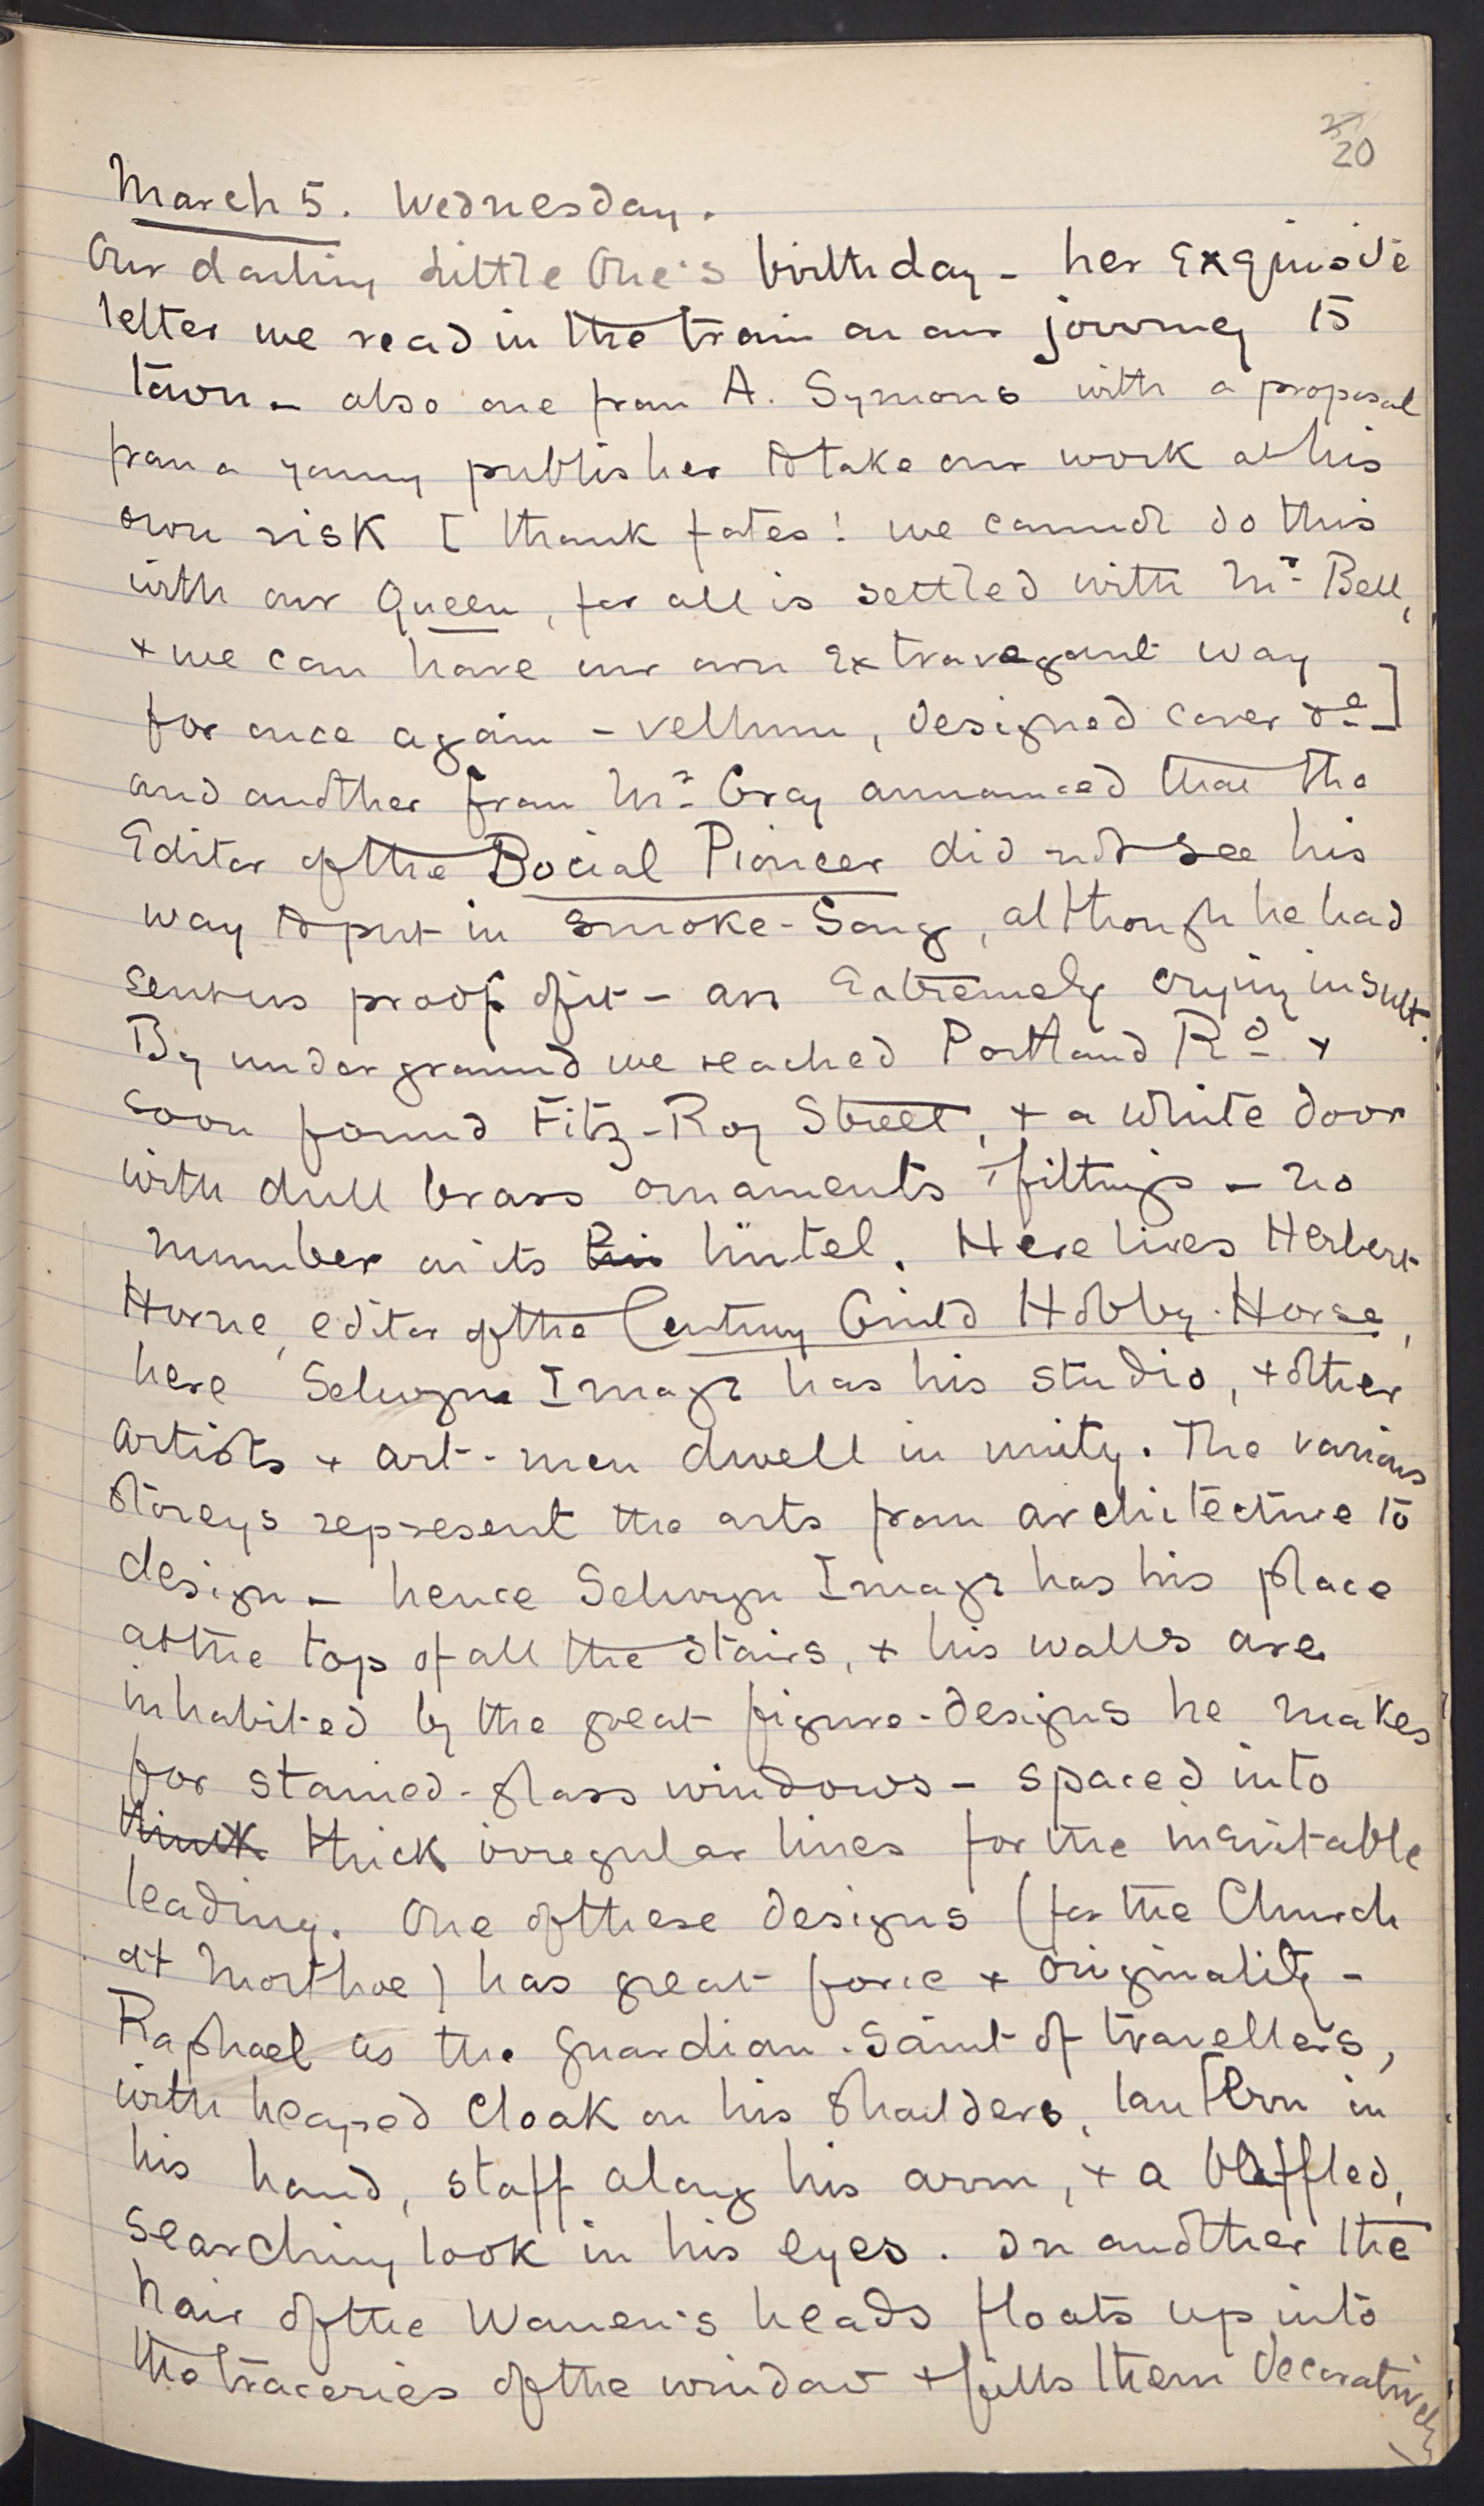 27
20
March 5. Wednesday.
Our darling Little One's birthday - her exquisite
letter we read in the train on our journey to
town - also one from A. Symons with a proposal
from a young publisher to take our work at his
own risk [ thank fates! we cannot do this
with our Queen, for all is settled with Mr. Bell,
+ we can have our own extravagant way
for once again - vellum, designed cover &c]
and another from Mr. Gray announced that the
Editor of the Social Pioneer did not see his
way to put in Smoke-Song, although he had
sent us proof of it - an Extremely crying insult.
By underground we reached Portland Rd +
soon found Fitz-Roy Street, + a white door
with dull brass ornaments + fittings - no
number on its lin lintel. Here lives Herbert
Horne, editor of the Century Guild Hobby-Horse,
here Selwyn Image has his studio, + other
artists + art-men dwell in unity. The various
storeys represent the arts from architecture to
design - hence Selwyn Image has his place
at the top of all the stairs, + his walls are
inhabited by the great figure-designs he makes
for stained-glass windows - spaced into
think thick irregular lines for the inevitable
leading. One of these designs (for the Church
at Morthoe) has great force + originality -
Raphael as the guardian-saint of travellers,
with heaped cloak on his shoulders, lantern in
his hand, staff along his arm, + a baffled,
searching look in his eyes. In another the
hair of the Women's heads floats up into
the traceries of the window + fills them decoratively